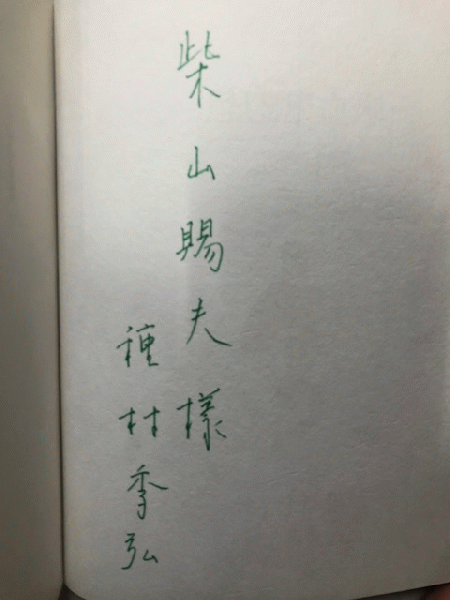 柴山賜夫様
種村季弘